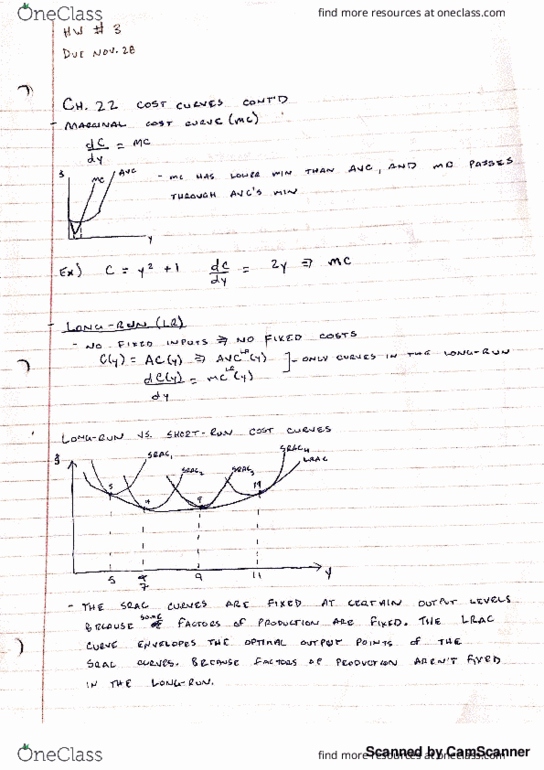 OneClass
find more resources at oneclass.com
HW # 3
DUE NOV. 28
CH. 22 COST CURVES CONT'D
- MARGINAL COST CURVE (MC)
dC/dy = MC
$ MC AVC
- MC HAS LOWER MIN THAN AVC, AND MC PASSES
THROUGH AVC'S MIN
y
EX) C = y² + 1 dC/dy = 2y ⇒ MC
- LONG-RUN (LR)
- NO FIXED INPUTS ⇒ NO FIXED COSTS
C(y) = AC(y) ⇒ AVC^LR(y) ] - ONLY CURVES IN THE LONG-RUN
dC(y)/dy = MC^LR(y)
LONG-RUN VS. SHORT-RUN COST CURVES
$ SRAC₁ SRAC₂ SRAC₃ SRAC₄ LRAC
5 9 11 y
- THE SRAC CURVES ARE FIXED AT CERTAIN OUTPUT LEVELS
BECAUSE SOME FACTORS OF PRODUCTION ARE FIXED. THE LRAC
CURVE ENVELOPES THE OPTIMAL OUTPUT POINTS OF THE
SRAC CURVES. BECAUSE FACTORS OF PRODUCTION AREN'T FIXED
IN THE LONG-RUN.
OneClass
find more resources at oneclass.com
Scanned by CamScanner